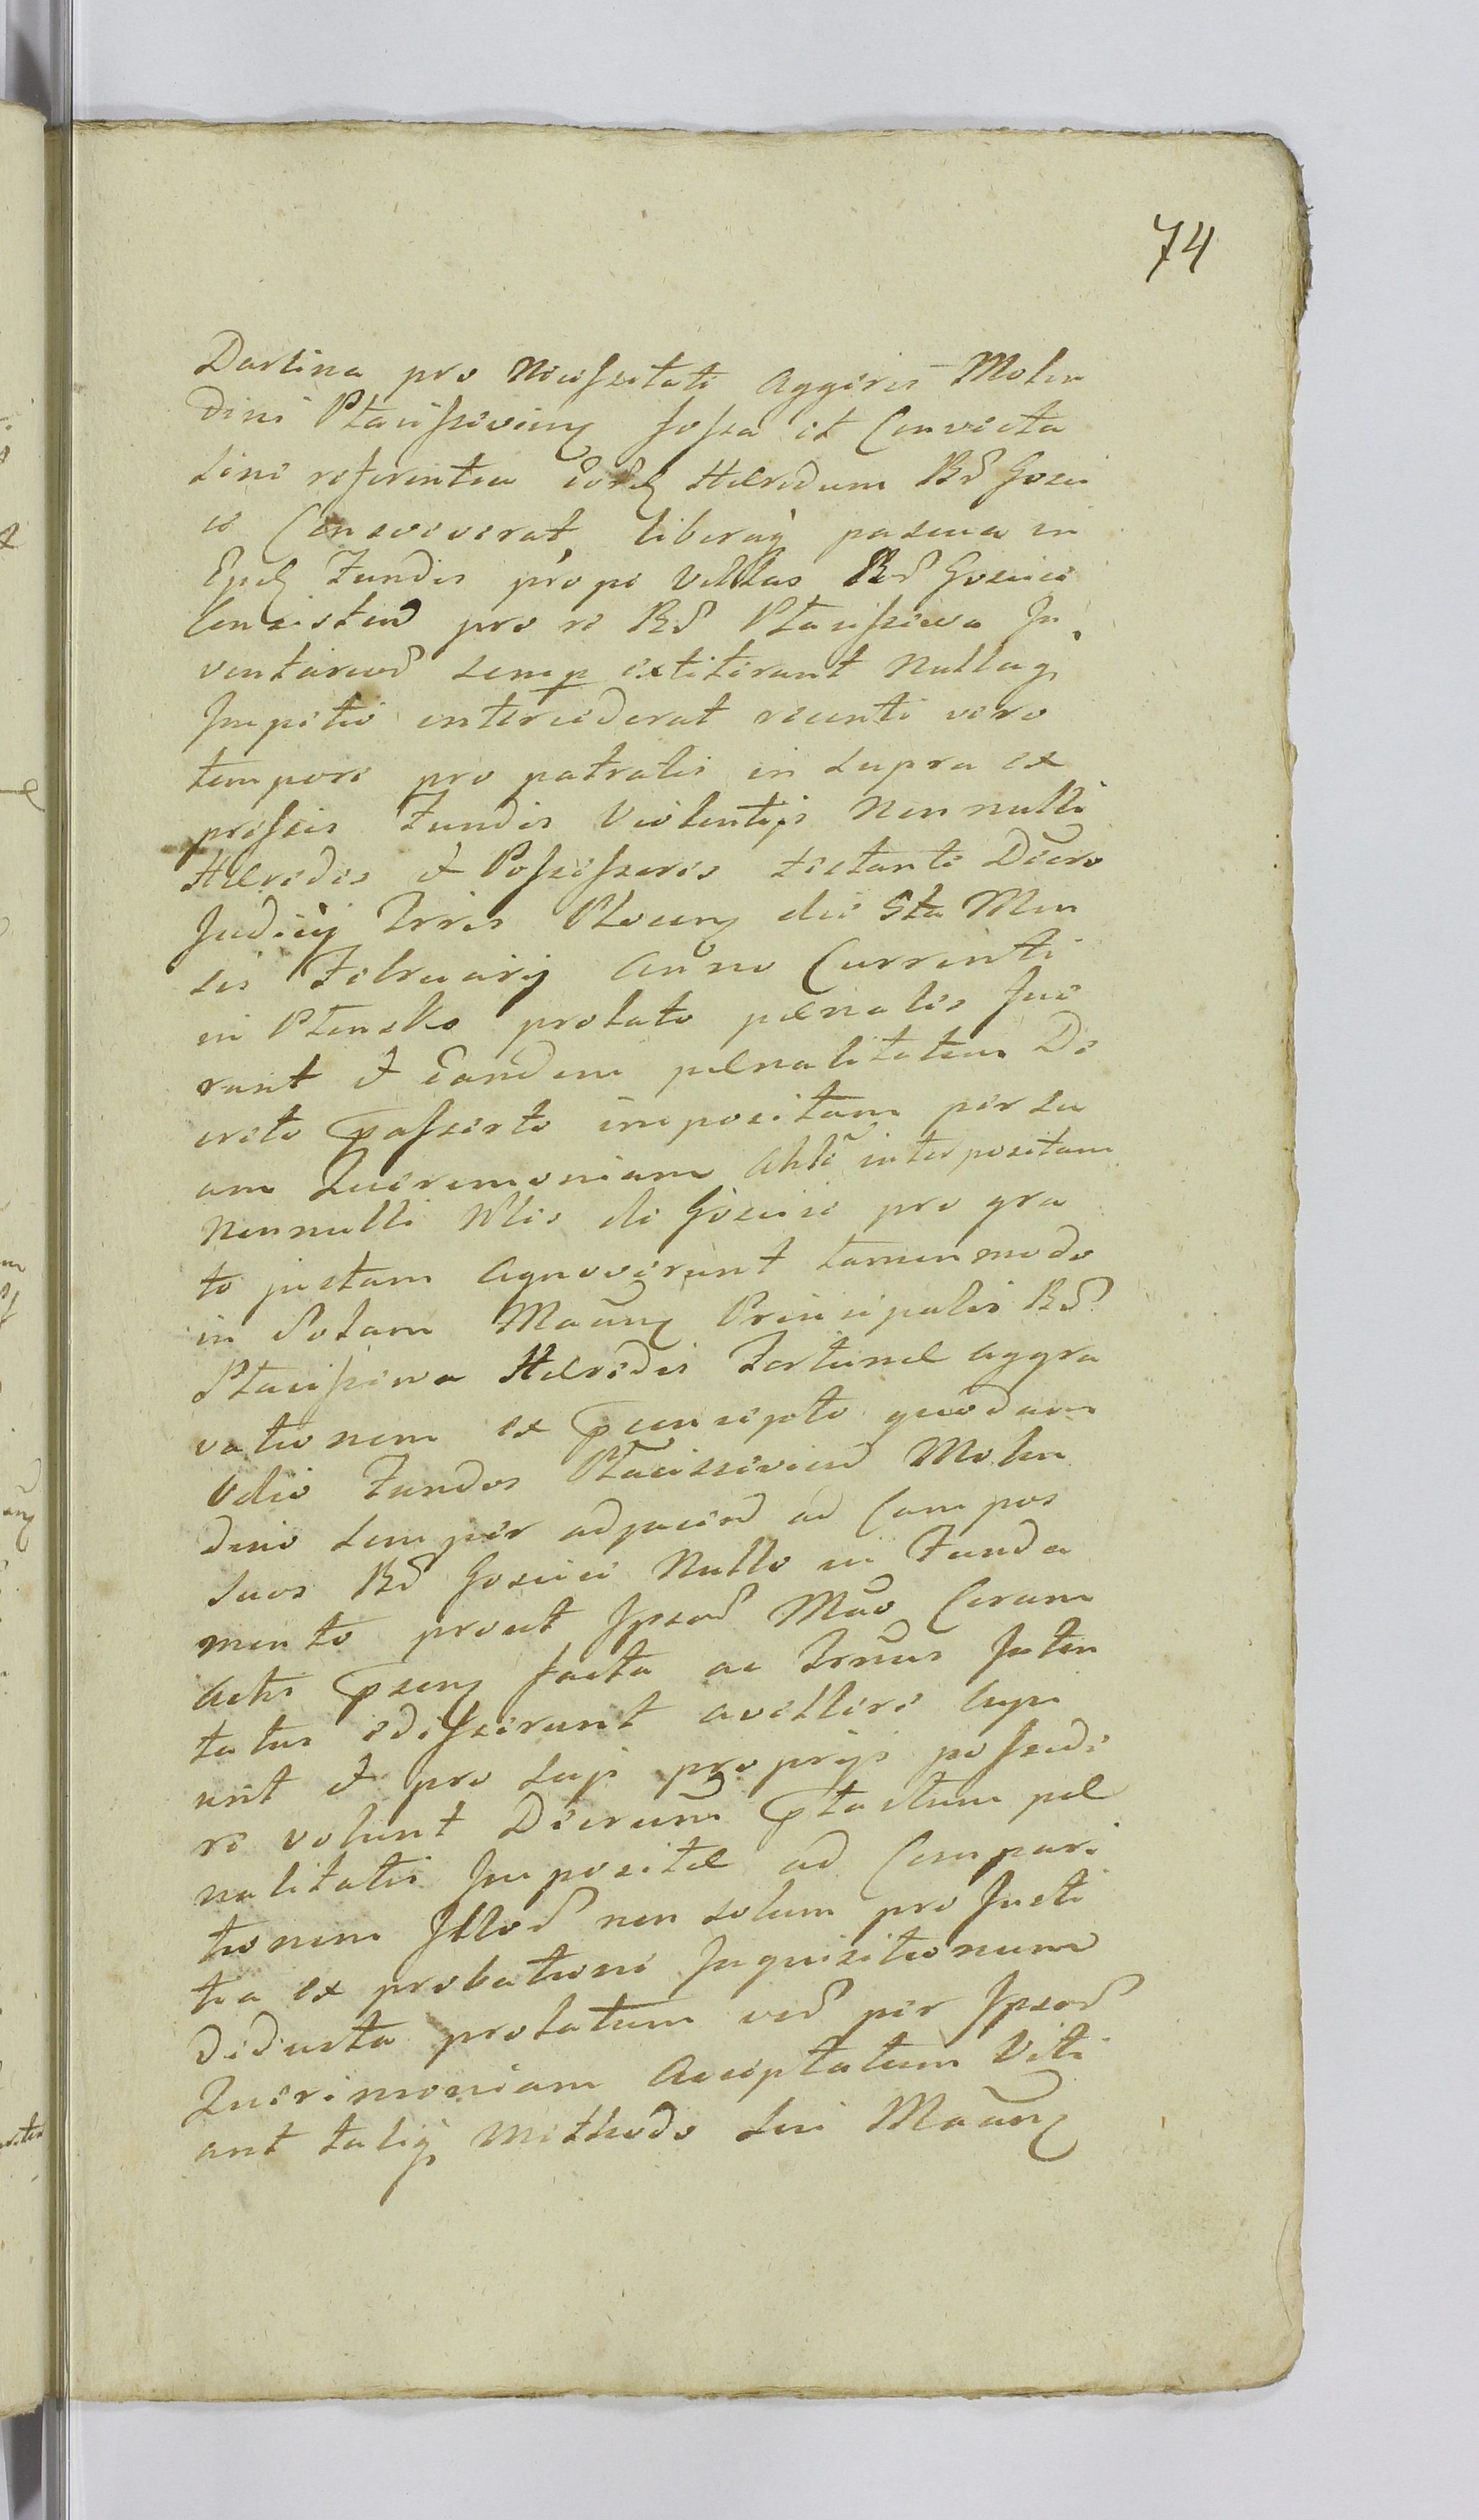 74
Darlina pro Necessitate Aggeris Molen
dini Ptaciszevien fossa et Convicta
sine referentia Eord Hæredum Bd Gosci
ce Consveverat, liberaq pascua in
Epd Fundis prope Villas Bd Goscice
Consisten pro re Bd Ptaciszewa In
ventariod semp extiterant Nullaq
Impetio intercederat recenti vero
tempore pro patratis in supra ex
pressis Fundis Violentijs Nonnulli
Hæredes et Possessores dictante Decro
Judicij Trris Plocen die 5ta Men
sis Februarij Anno Currenti
in Plensko prolato pænales fue
runt et Eandem pænalitatem De
creto passerto impositam per su
am Querimoniam Ahli interpositam
Nonnulli Nbles de Goscice pro gra
to justam agnoverunt tamen modo
in Solam Maan Principalis Bd
Ptaciszewa Hæredis Fortunæ aggra
vationem ex pconcepto quodam
Odio Fundos Ptaciszeviend Molen
dino semper adjacend ad Campos
suos Bd Goscice Nullo in Funda
mento prout Ipsod Mao Coram
Actis psen facta ac Trnus Inten
tatus edisserunt avellere cupi
unt et pro suis proprijs posside
re volunt Decrum ptactum pæ
nalitatis Impositæ ad Compari
tionem Illod non solum pro Justi
tia ex probatione Inquisitionum
Deducta prolatum ved per Ipsod
Querimoniam Acceptatum Viti
ant taliq Methodo sui Maan